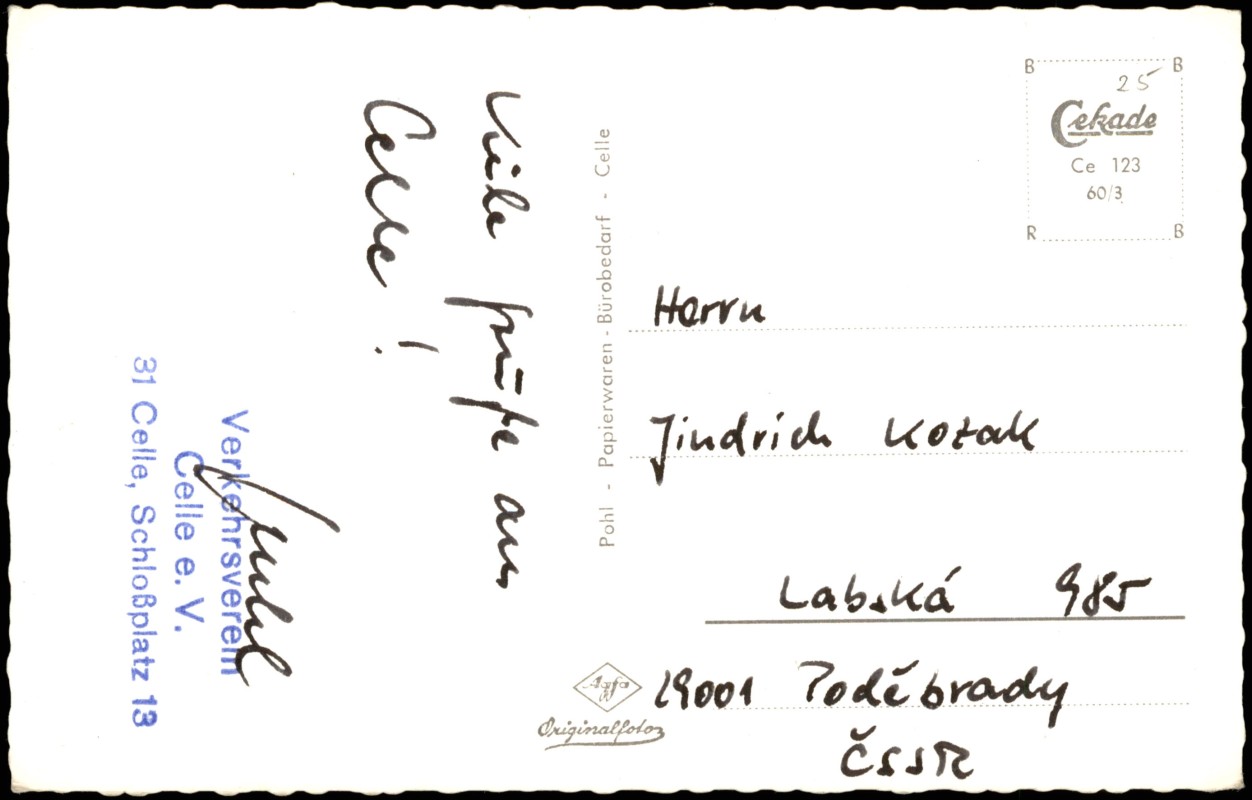 Viele Grüße aus
Celle!
Verkehrsverein
Celle e. V.
31 Celle, Schloßplatz 13
Pohl - Papierwaren - Bürobedarf - Celle
B B
25
Cekade
Ce 123
60/3
R B
Herrn
Jindrich Kozak
Labská 985
29001 Poděbrady
ČSSR
Agfa
Originalfoto